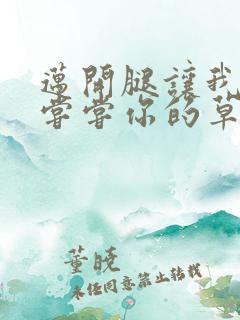 邁開腿讓我
嘗嘗你的草
董晓
未经同意禁止转载